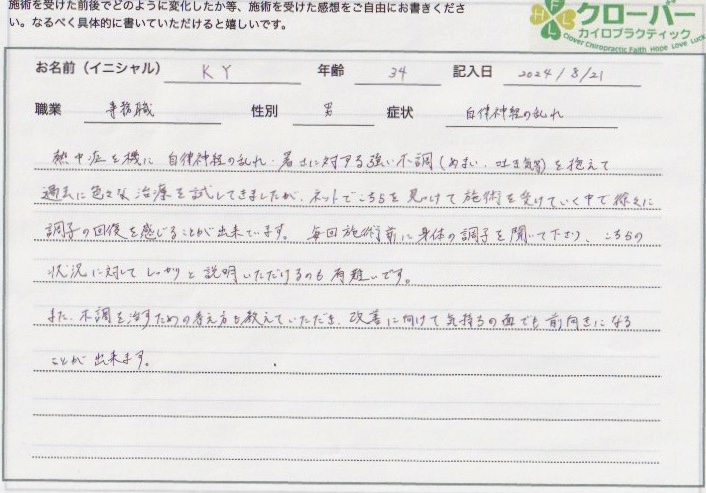 施術を受けた前後でどのように変化したか等、施術を受けた感想をご自由にお書きくださ
い。なるべく具体的に書いていただけると嬉しいです。
HFLL
クローバー
カイロプラクティック
Clover Chiropractic Faith Hope Love Luck
お名前（イニシャル） KY 年齢 34 記入日 2024/8/21
職業 事務職 性別 男 症状 自律神経の乱れ
熱中症を機に 自律神経の乱れ・暑さに対する強い不調（めまい、吐き気等）を抱えて
過去に色々な治療を試してきましたが、ネットでこちらを見つけて施術を受けていく中で徐々に
調子の回復を感じることが出来ています。毎回施術前に身体の調子を聞いて下さり、こちらの
状況に対してしっかりと説明いただけるのも有難いです。
また、不調を治すための考え方も教えていただき、改善に向けて気持ちの面でも前向きになる
ことが出来ます。